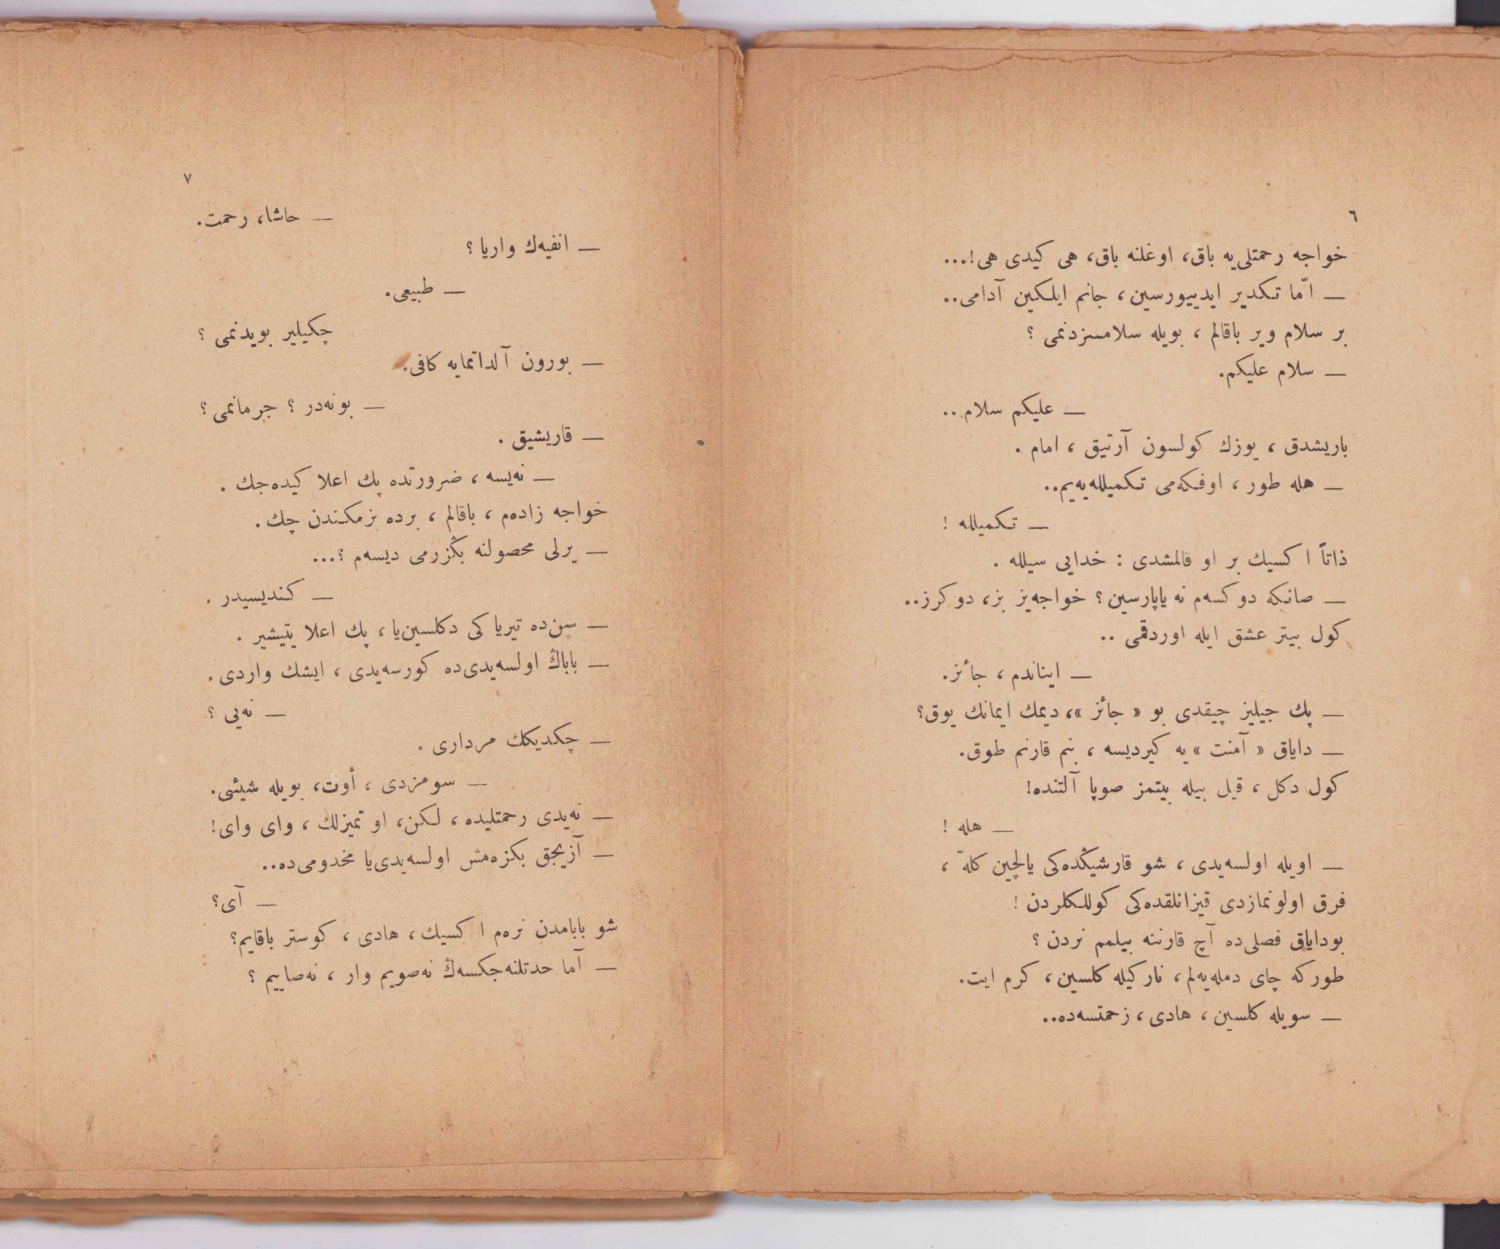 ٦
خواجه رحمتلی‌یه باق، اوغلنه باق، هی کیدی هی!...
— امّا تكدیر ایدییورسین، جانم ایلكین آدامی..
بر سلام ویر باقالم ، بویله سلامسزدنمی ؟
— سلام علیكم.
— علیكم سلام..
باریشدق ، یوزك كولسون آرتیق ، امام .
— هله طور ، اوفكه‌می تكمیلله‌یه‌یم..
— تكمیلله !
ذاتاً اكسیك بر او قالمشدی : خدایی سیلله .
— صانكه دوكسه‌م نه یاپارسین؟ خواجه‌یز بز، دوكرز..
كول بیتر عشق ایله اوردقمی ..
— ایناندم ، جائز.
— پك جیلیز چیقدی بو « جائز »، دیمك ایمانك یوق؟
— دایاق « آمنت » یه كیردیسه ، بنم قارنم طوق.
كول دكل ، قیل بیله بیتمز صوپا آلتنده!
— هله !
— اویله اولسه‌یدی ، شو قارشیڭده‌كی یالچین كلّه ،
فرق اولونمازدی قیزانلقده‌كی كوللكلردن !
بودایاق فصلی‌ده آچ قارننه بیلمم نردن ؟
طوركه چای دمله‌یه‌لم ، ناركیله كلسین ، كرم ایت.
— سویله كلسین ، هادی ، زحمتسه‌ده..
٧
— حاشا، رحمت.
— انفیه‌ك واریا ؟
— طبیعی.
چكیلیر بویدنمی ؟
— بورون آلداتمایه كافی.
— بونه‌در ؟ جرمانمی ؟
— قاریشیق .
— نه‌یسه ، ضرورتده پك اعلا كیده‌جك .
خواجه زاده‌م ، باقالم ، برده بزمكندن چك .
— یرلی محصولنه بڭزرمی دیسه‌م ؟...
— كندیسیدر .
— سن‌ده تیریاكی دكلسین‌یا ، پك اعلا یتیشیر .
— باباڭ اولسه‌یدی‌ده كورسه‌یدی ، ایشك واردی .
— نه‌یی ؟
— چكدیكك مرداری .
— سومزدی ، أوت، بویله شیئی.
— نه‌یدی رحمتلیده ، لكن، او تمیزلك ، وای وای!
— آزیجق بكزه‌مش اولسه‌یدی‌یا مخدومی‌ده..
— آی؟
شو بابامدن نره‌م اكسیك ، هادی ، كوستر باقایم؟
— آما حدتلنه‌جكسه‌ڭ نه‌صویم وار ، نه‌صاییم ؟